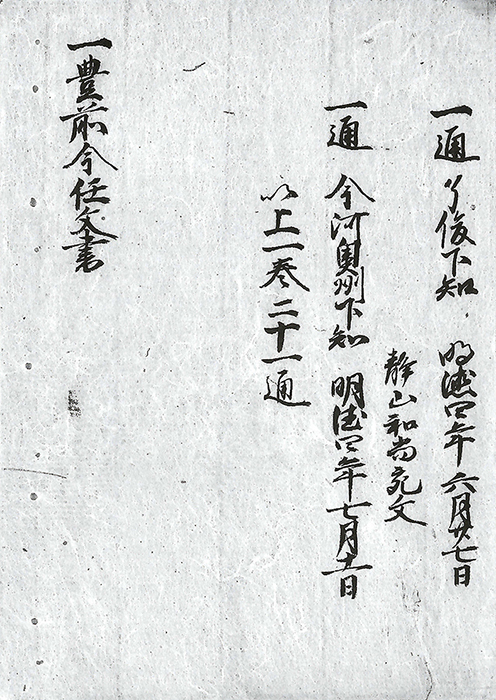 一通 了俊下知 明徳四年六月廿七日
静山和尚宛文
一通 今河奥州下知 明徳四年七月十一日
以上一巻二十一通
一豊前今任文書